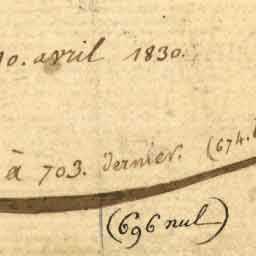 10. avril 1830.
à 703. dernier. (674.
(696 nul)